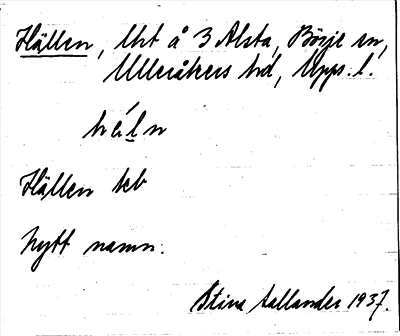 Hällen, lht å 3 Alsta, Börje sn,
Ulleråkers hd, Upps. l.
hä́ln
Hällen kb
Nytt namn.
Stina Aallander 1937.